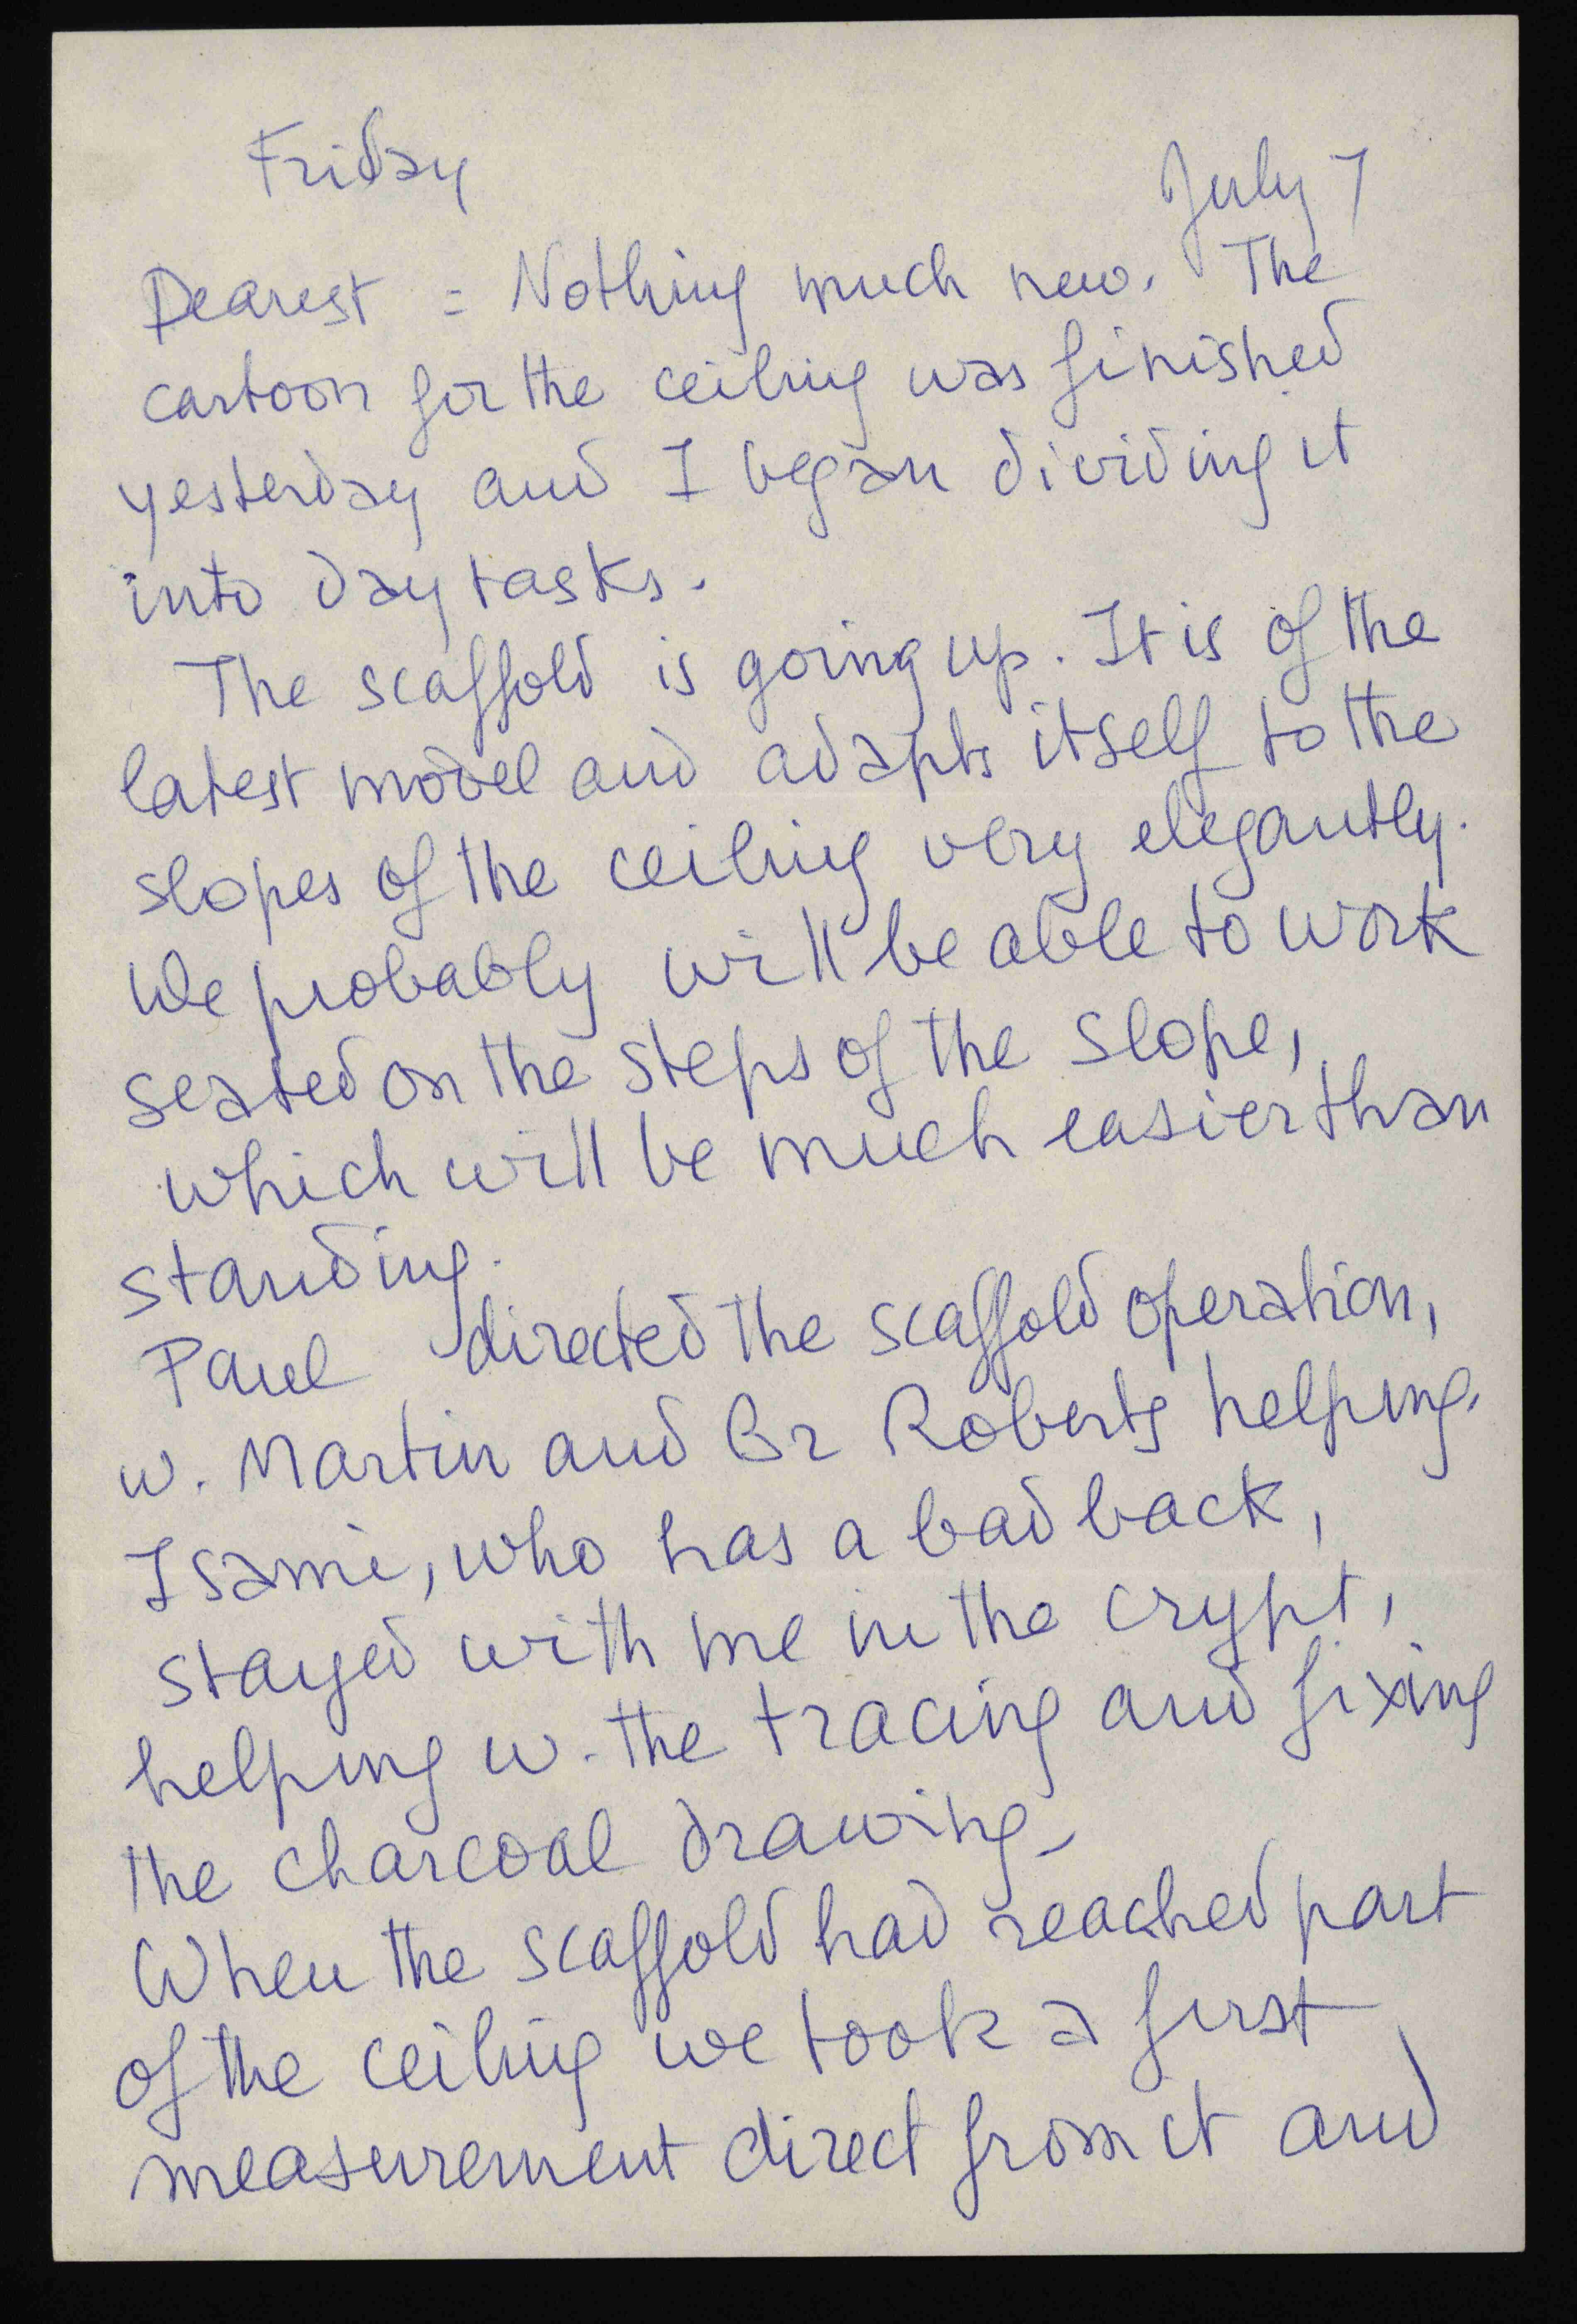 Friday
July 7
Dearest = Nothing much new. The
cartoon for the ceiling was finished
yesterday and I began dividing it
into day tasks.
The scaffold is going up. It is of the
latest model and adapts itself to the
slopes of the ceiling very elegantly.
We probably will be able to work
seated on the steps of the slope,
which will be much easier than
standing.
Paul directed the scaffold operation,
w. Martin and Br Roberts helping.
Isami, who has a bad back,
stayed with me in the crypt,
helping w. the tracing and fixing
the charcoal drawing.
When the scaffold had reached part
of the ceiling we took a first
measurement direct from it and